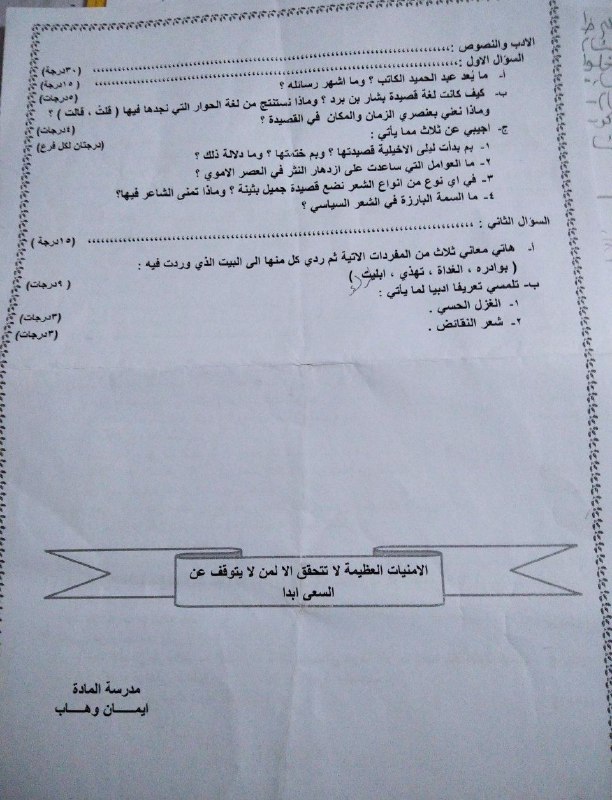 الادب والنصوص : (٣٠درجة)
السؤال الاول : (١٥درجة )
أ- ما يُعد عبد الحميد الكاتب ؟ وما اشهر رسائله ؟ (٥درجات)
ب- كيف كانت لغة قصيدة بشار بن برد ؟ وماذا نستنتج من لغة الحوار التي نجدها فيها ( قلتُ ، قالت ) ؟
وماذا نعني بعنصري الزمان والمكان في القصيدة ؟ (٤درجات)
ج- اجيبي عن ثلاث مما يأتي : (درجتان لكل فرع)
١- بم بدأت ليلى الاخيلية قصيدتها ؟ وبم ختمتها ؟ وما دلالة ذلك ؟
٢- ما العوامل التي ساعدت على ازدهار النثر في العصر الاموي ؟
٣- في اي نوع من انواع الشعر نضع قصيدة جميل بثينة ؟ وماذا تمنى الشاعر فيها؟
٤- ما السمة البارزة في الشعر السياسي ؟
السؤال الثاني : (١٥درجة )
أ- هاتي معاني ثلاث من المفردات الاتية ثم ردي كل منها الى البيت الذي وردت فيه :
( بوادره ، الغداة ، تهذي ، ابليت ) ( ٩درجات)
ب- تلمسي تعريفا ادبيا لما يأتي :
١- الغزل الحسي . (٣درجات)
٢- شعر النقائض . (٣درجات)
الامنيات العظيمة لا تتحقق الا لمن لا يتوقف عن
السعي ابدا
مدرسة المادة
ايمـــان وهـــاب